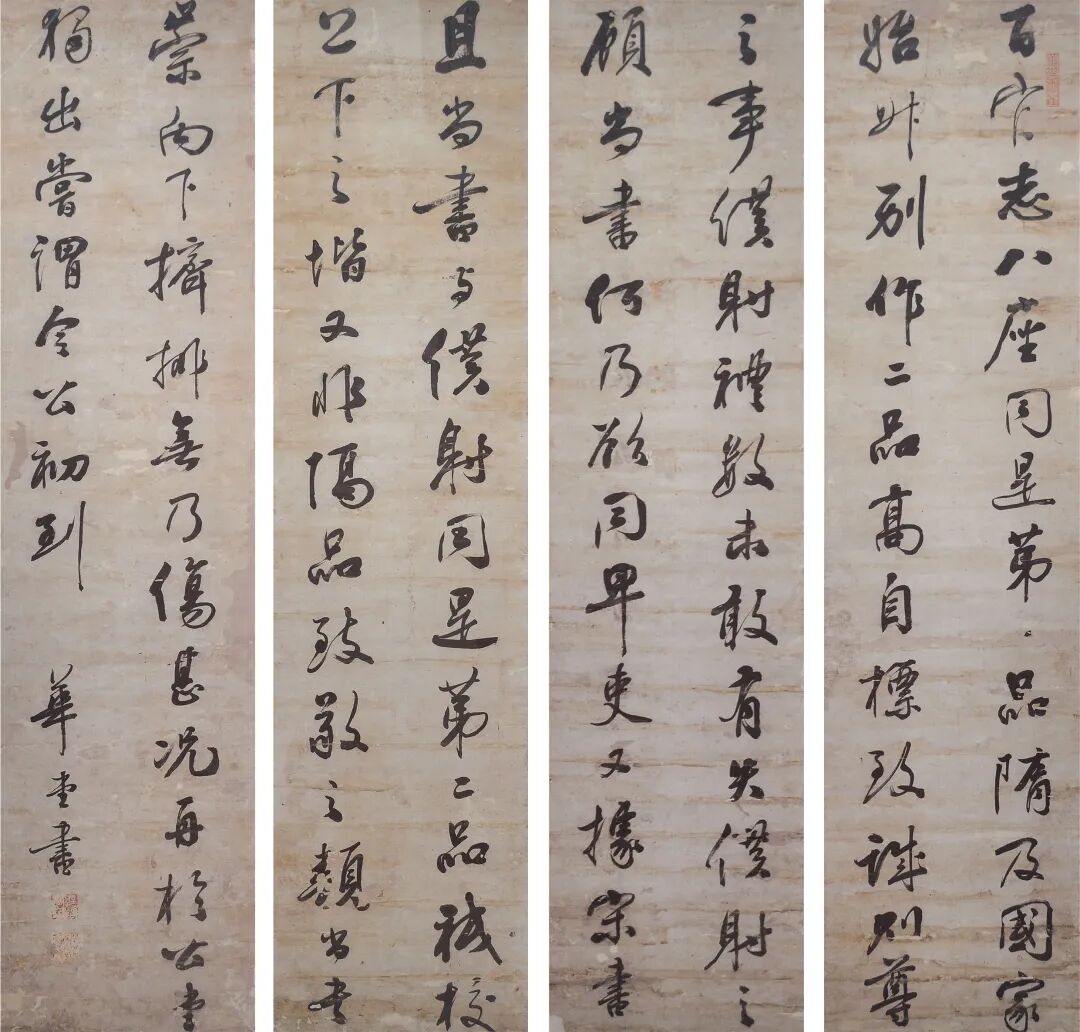 百官志八座同是第品隋及國家
始升別作二品高自標致誠則尊
之事僕射禮數未敢有失僕射之
顧尚書何乃欲同卑吏又據宋書
且尚書與僕射同是第二品祗校
上下之階又非隔品致敬之類尚書
崇向下擠排無乃傷甚況再於公堂
獨出嘗謂令公初到
華堂書